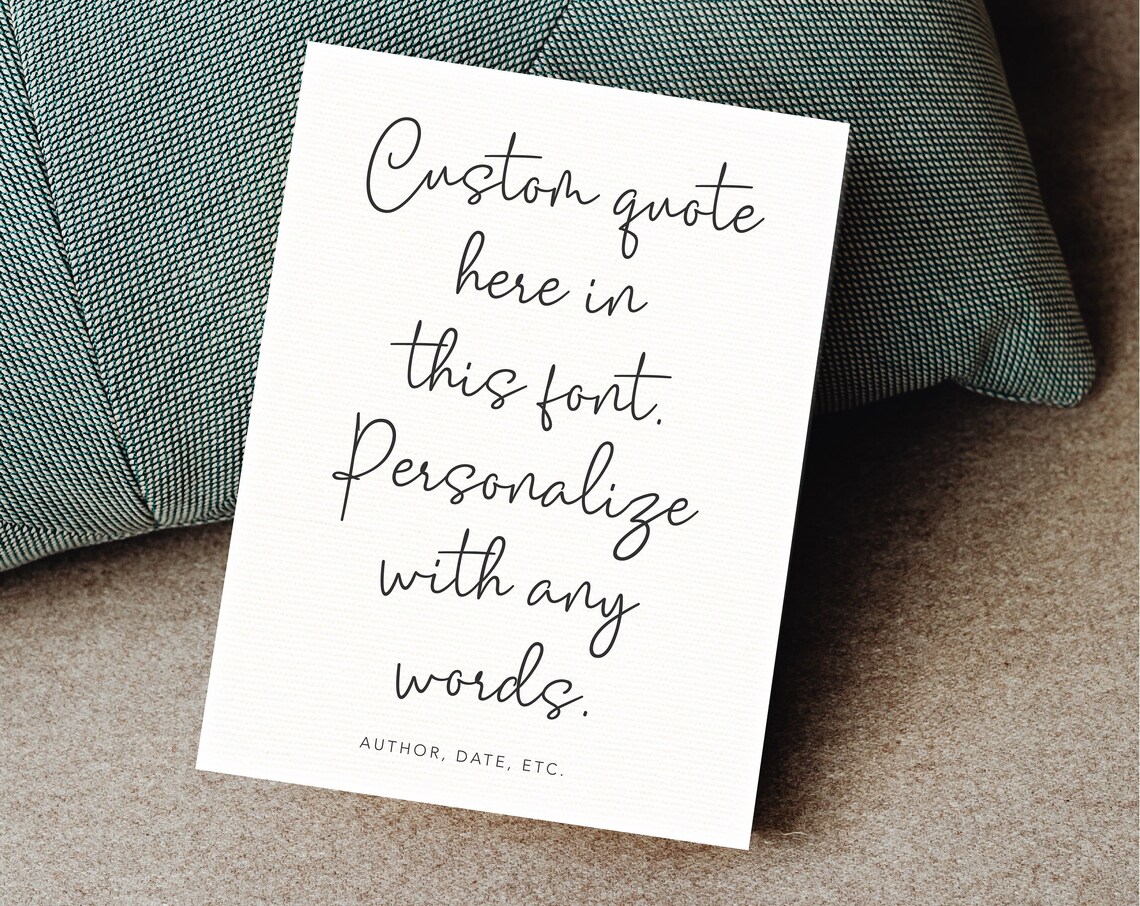 Custom quote
here in
this font.
Personalize
with any
words.
AUTHOR, DATE, ETC.